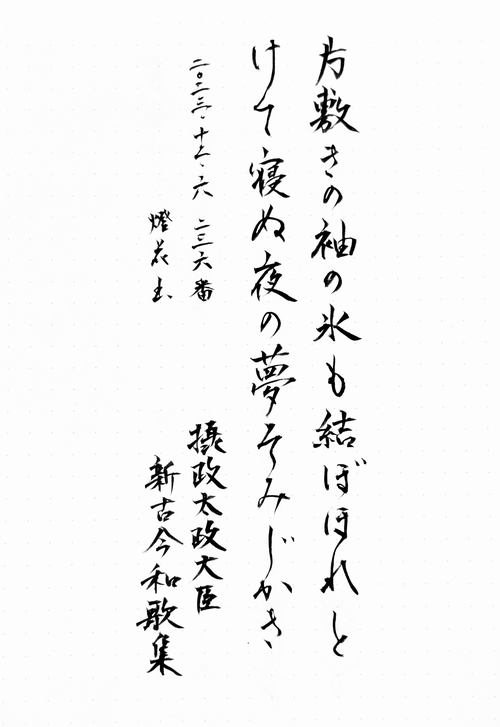 片敷きの袖の氷も結ぼほれと
けて寝ぬ夜の夢そみじかき
二〇二三・十二・六 二三六番
摂政太政大臣
燈花書
新古今和歌集